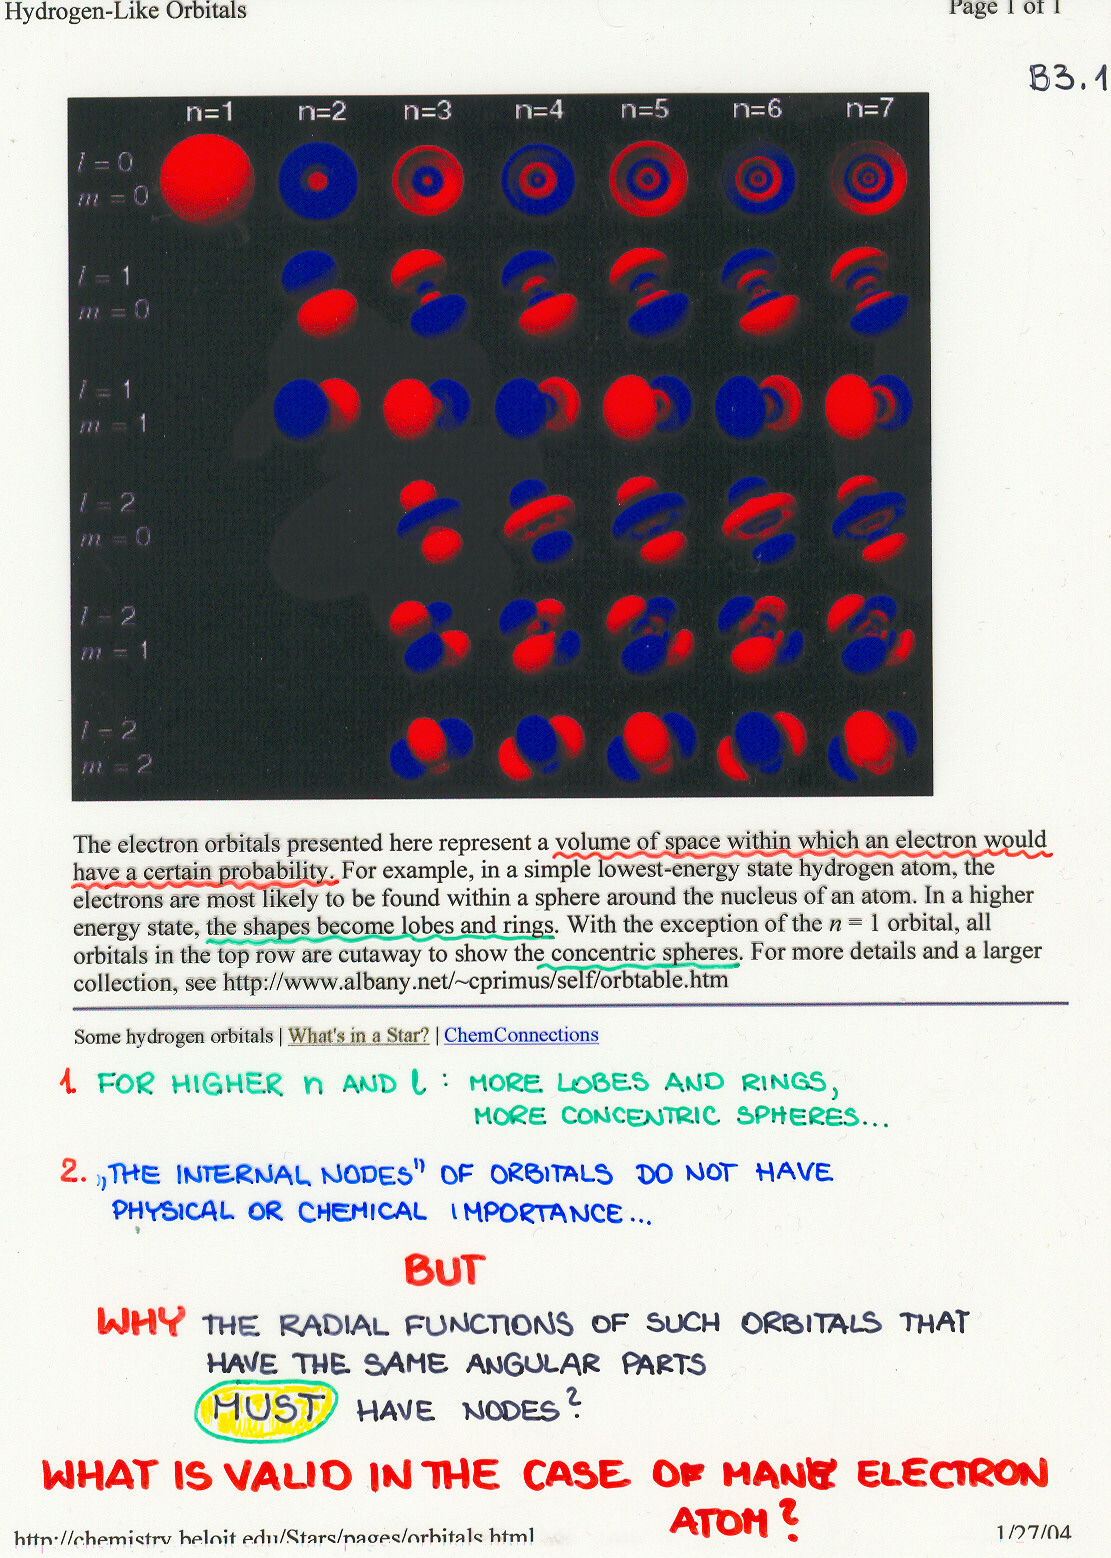 Hydrogen-Like Orbitals
Page 1 of 1
B3.1
n=1 n=2 n=3 n=4 n=5 n=6 n=7
l = 0
m = 0
l = 1
m = 0
l = 1
m = 1
l = 2
m = 0
l = 2
m = 1
l = 2
m = 2
The electron orbitals presented here represent a volume of space within which an electron would
have a certain probability. For example, in a simple lowest-energy state hydrogen atom, the
electrons are most likely to be found within a sphere around the nucleus of an atom. In a higher
energy state, the shapes become lobes and rings. With the exception of the n = 1 orbital, all
orbitals in the top row are cutaway to show the concentric spheres. For more details and a larger
collection, see http://www.albany.net/~cprimus/self/orbtable.htm
Some hydrogen orbitals | What's in a Star? | ChemConnections
1. FOR HIGHER n AND l : MORE LOBES AND RINGS,
MORE CONCENTRIC SPHERES...
2. „THE INTERNAL NODES" OF ORBITALS DO NOT HAVE
PHYSICAL OR CHEMICAL IMPORTANCE...
BUT
WHY THE RADIAL FUNCTIONS OF SUCH ORBITALS THAT
HAVE THE SAME ANGULAR PARTS
MUST HAVE NODES?
WHAT IS VALID IN THE CASE OF MANY ELECTRON
ATOM?
http://chemistry.beloit.edu/Stars/pages/orbitals.html
1/27/04